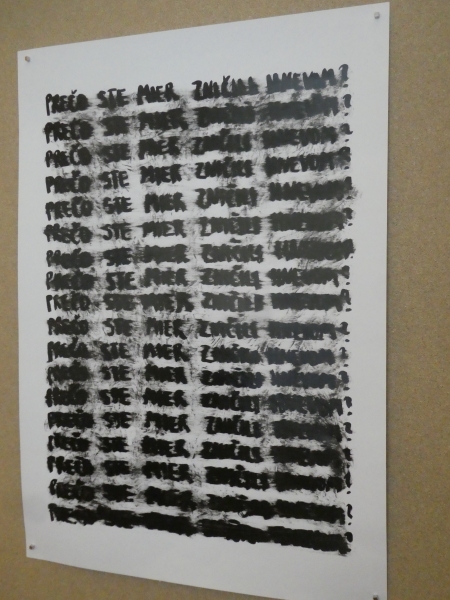 PREČO STE MIER ZNIČILI HNEVOM?
PREČO STE MIER ZNIČILI HNEVOM?
PREČO STE MIER ZNIČILI HNEVOM?
PREČO STE MIER ZNIČILI HNEVOM?
PREČO STE MIER ZNIČILI HNEVOM?
PREČO STE MIER ZNIČILI HNEVOM?
PREČO STE MIER ZNIČILI HNEVOM?
PREČO STE MIER ZNIČILI HNEVOM?
PREČO STE MIER ZNIČILI HNEVOM?
PREČO STE MIER ZNIČILI HNEVOM?
PREČO STE MIER ZNIČILI HNEVOM?
PREČO STE MIER ZNIČILI HNEVOM?
PREČO STE MIER ZNIČILI HNEVOM?
PREČO STE MIER ZNIČILI HNEVOM?
PREČO STE MIER ZNIČILI HNEVOM?
PREČO STE MIER ZNIČILI HNEVOM?
PREČO STE MIER ZNIČILI HNEVOM?
PREČO